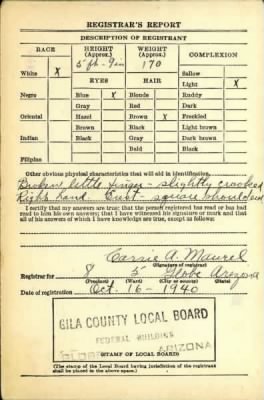 REGISTRAR'S REPORT
DESCRIPTION OF REGISTRANT
RACE HEIGHT (Approx.) WEIGHT (Approx.) COMPLEXION
5 ft - 9 in 170
White X Sallow
EYES HAIR Light X
Negro Blue X Blonde Ruddy
Gray Red Dark
Oriental Hazel Brown X Freckled
Brown Black Light brown
Indian Black Gray Dark brown
Bald Black
Filipino
Other obvious physical characteristics that will aid in identification.
Broken little finger - slightly crooked
Right hand. - square shouldered
I certify that my answers are true; that the person registered has read or has had
read to him his own answers; that I have witnessed his signature or mark and that
all of his answers of which I have knowledge are true, except as follows:
Carrie A. Maurel
(Signature of registrar)
Registrar for 8 5 Globe Arizona
(Precinct) (Ward) (City or county) (State)
Date of registration Oct. 16 - 1940
GILA COUNTY LOCAL BOARD
FEDERAL BUILDING
GLOBE ARIZONA
(STAMP OF LOCAL BOARD)
(The stamp of the Local Board having jurisdiction of the registrant
shall be placed in the above space.)